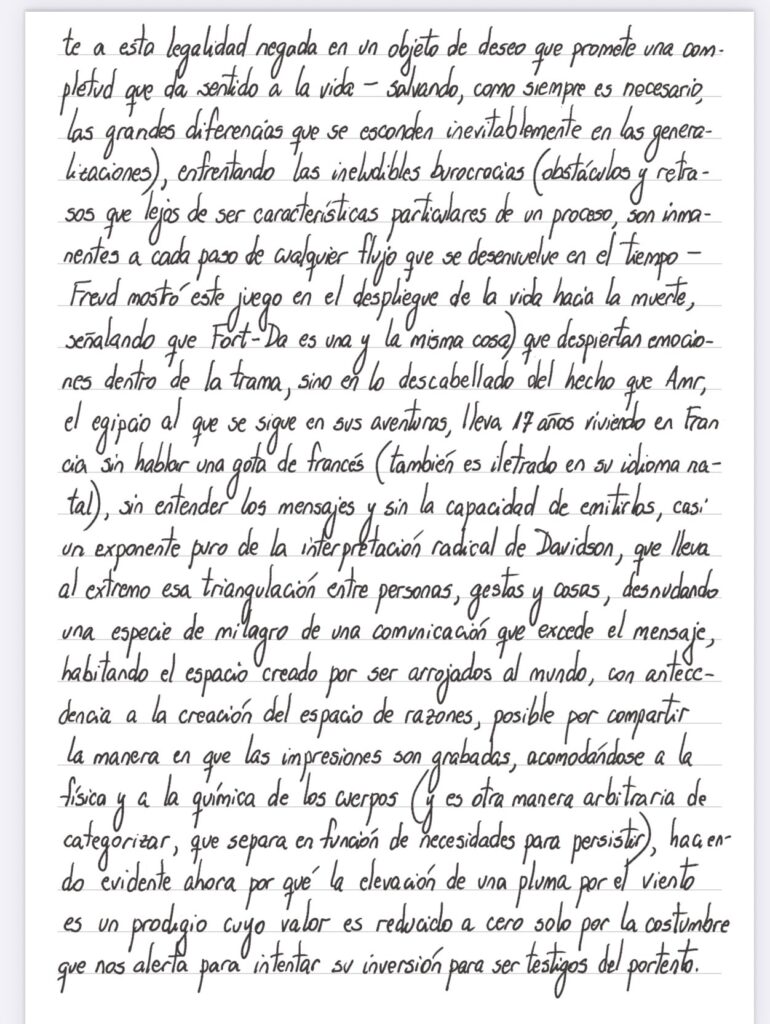 te a esta legalidad negada en un objeto de deseo que promete una com-
pletud que da sentido a la vida – salvando, como siempre es necesario,
las grandes diferencias que se esconden inevitablemente en las genera-
lizaciones), enfrentando las ineludibles burocracias (obstáculos y retra-
sos que lejos de ser características particulares de un proceso, son inma-
nentes a cada paso de cualquier flujo que se desenvuelve en el tiempo –
Freud mostró este juego en el despliegue de la vida hacia la muerte,
señalando que Fort-Da es una y la misma cosa) que despiertan emocio-
nes dentro de la trama, sino en lo descabellado del hecho que Amr,
el egipcio al que se sigue en sus aventuras, lleva 17 años viviendo en Fran
cia sin hablar una gota de francés (también es iletrado en su idioma na-
tal), sin entender los mensajes y sin la capacidad de emitirlos, casi
un exponente puro de la interpretación radical de Davidson, que lleva
al extremo esa triangulación entre personas, gestos y cosas, desnudando
una especie de milagro de una comunicación que excede el mensaje,
habitando el espacio creado por ser arrojados al mundo, con antece-
dencia a la creación del espacio de razones, posible por compartir
la manera en que las impresiones son grabadas, acomodándose a la
física y a la química de los cuerpos (y es otra manera arbitraria de
categorizar, que separa en función de necesidades para persistir), hacien-
do evidente ahora por qué la elevación de una pluma por el viento
es un prodigio cuyo valor es reducido a cero solo por la costumbre
que nos alerta para intentar su inversión para ser testigos del portento.